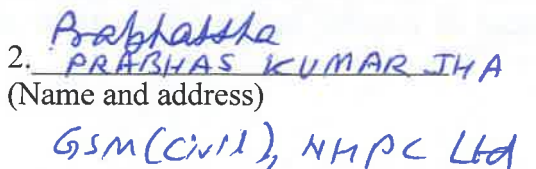 Prabhas Jha
2. PRABHAS KUMAR JHA
(Name and address)
GSM(Civil), NHPC Ltd